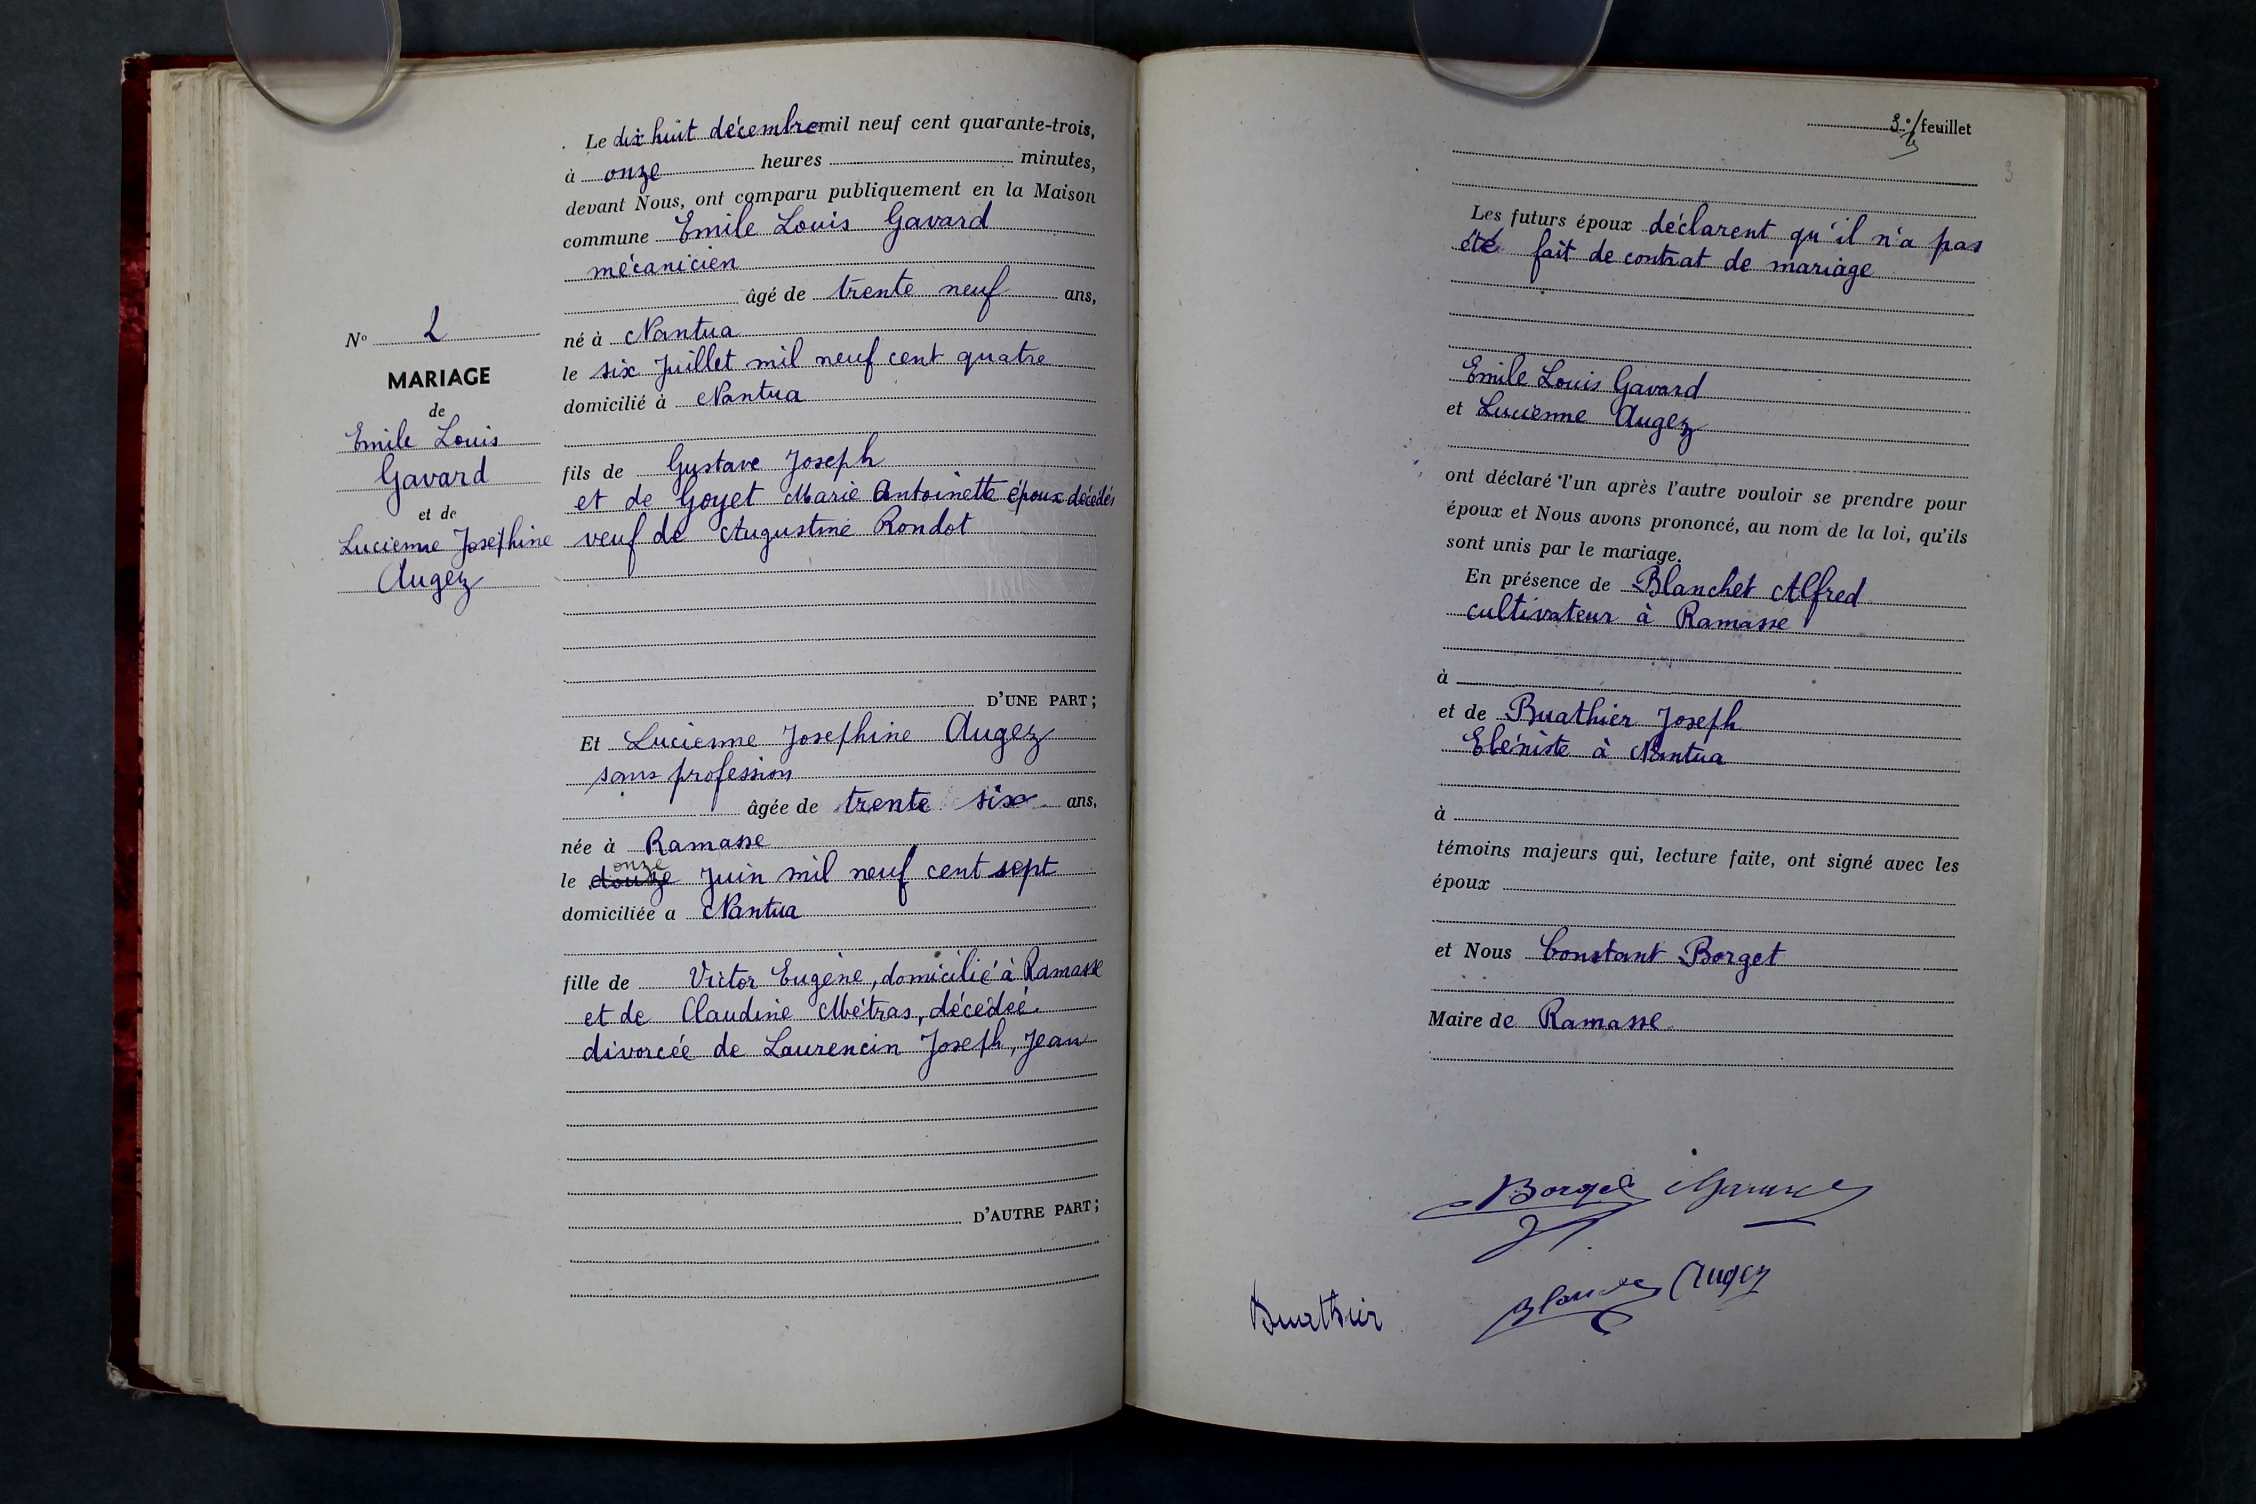 N° 2
MARIAGE
de
Emile Louis
Gavard
et de
Lucienne Josephine
Augez
Le dix huit décembre mil neuf cent quarante-trois,
à onze heures minutes,
devant Nous, ont comparu publiquement en la Maison
commune Emile Louis Gavard
mécanicien
âgé de trente neuf ans,
né à Nantua
le six Juillet mil neuf cent quatre
domicilié à Nantua
fils de Gustave Joseph
et de Goyet Marie Antoinette époux décédés
veuf de Augustine Rondot
D'UNE PART;
Et Lucienne Josephine Augez
sans profession
âgée de trente six ans,
née à Ramasse
onze
le douze Juin mil neuf cent sept
domiciliée a Nantua
fille de Victor Eugène, domicilié à Ramasse
et de Claudine Métras, décédée.
divorcée de Laurencin Joseph, Jean
D'AUTRE PART;
3e feuillet
3
Les futurs époux déclarent qu'il n'a pas
été fait de contrat de mariage
Emile Louis Gavard
et Lucienne Augez
ont déclaré l'un après l'autre vouloir se prendre pour
époux et Nous avons prononcé, au nom de la loi, qu'ils
sont unis par le mariage.
En présence de Blanchet Alfred
cultivateur à Ramasse
à
et de Buathier Joseph
Ebéniste à Nantua
à
témoins majeurs qui, lecture faite, ont signé avec les
époux
et Nous Constant Borget
Maire de Ramasse
Borget
Augez
Buathier